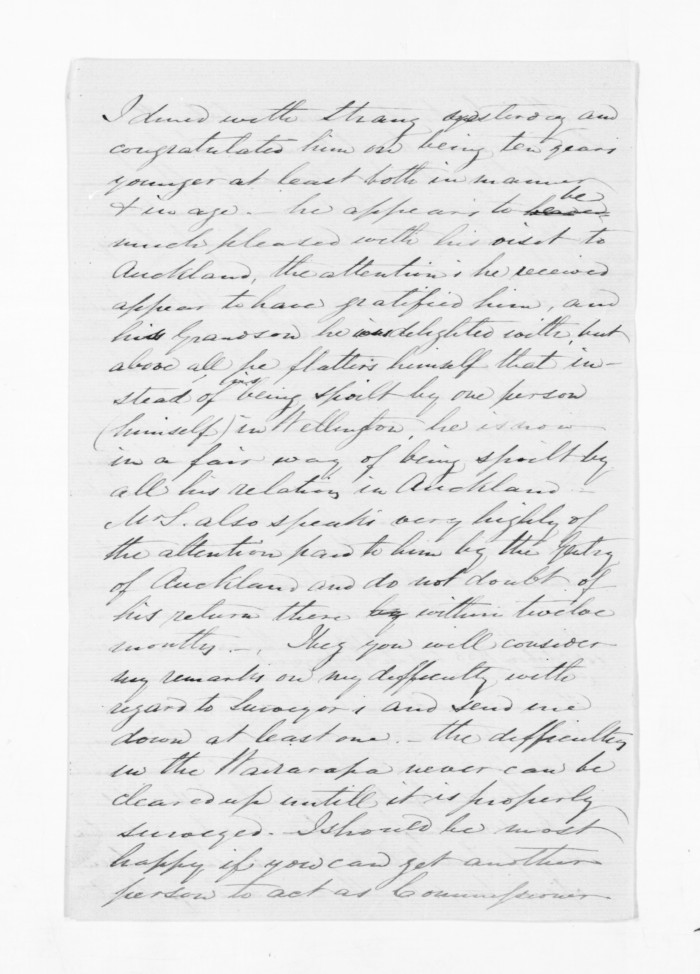 I dined with Strang yesterday and
congratulated him on being ten years
younger at least both in manner
& in age. - he appears to be
much pleased with his visit to
Auckland, the attentions he received
appear to have gratified him, and
his Grandson he is delighted with, but
above all he flatters himself that in-
stead of his being spoilt by one person
(himself) in Wellington, he is now
in a fair way of being spoilt by
all his relations in Auckland -
Mr S. also speaks very highly of
the attention paid to him by the Gentry
of Auckland and do not doubt of
his return there by within twelve
months. -. I beg you will consider
my remarks on my difficulty with
regard to Surveyors and send me
down at least one. - the difficulty
in the Wairarapa never can be
cleared up untill it is properly
surveyed. - I should be most
happy if you can get another
person to act as Commissioner